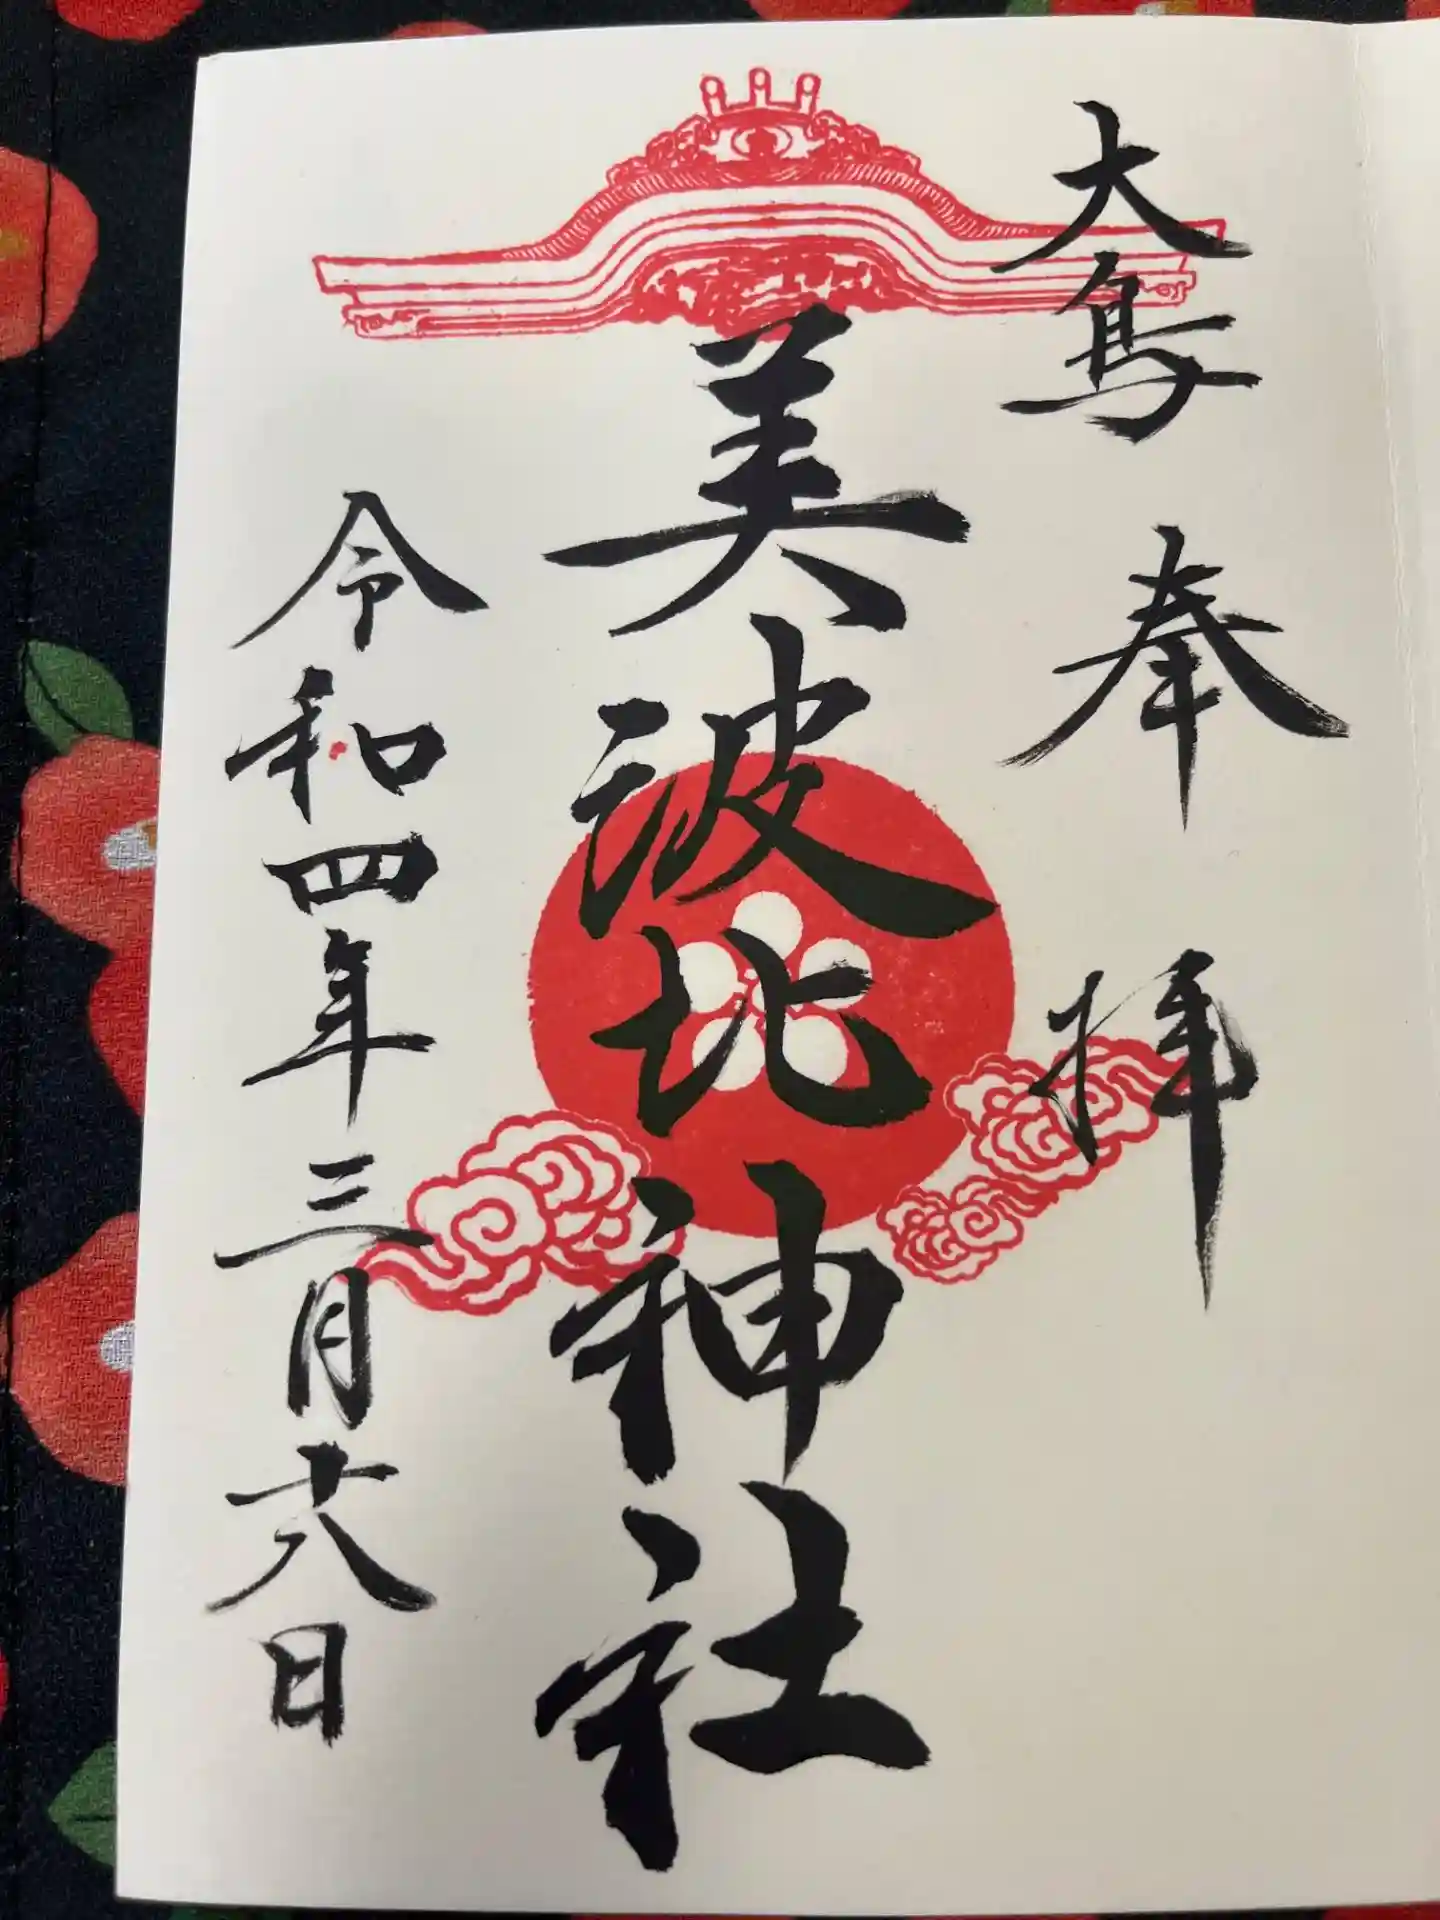 大鳥 奉拝
美波比神社
令和四年三月十八日